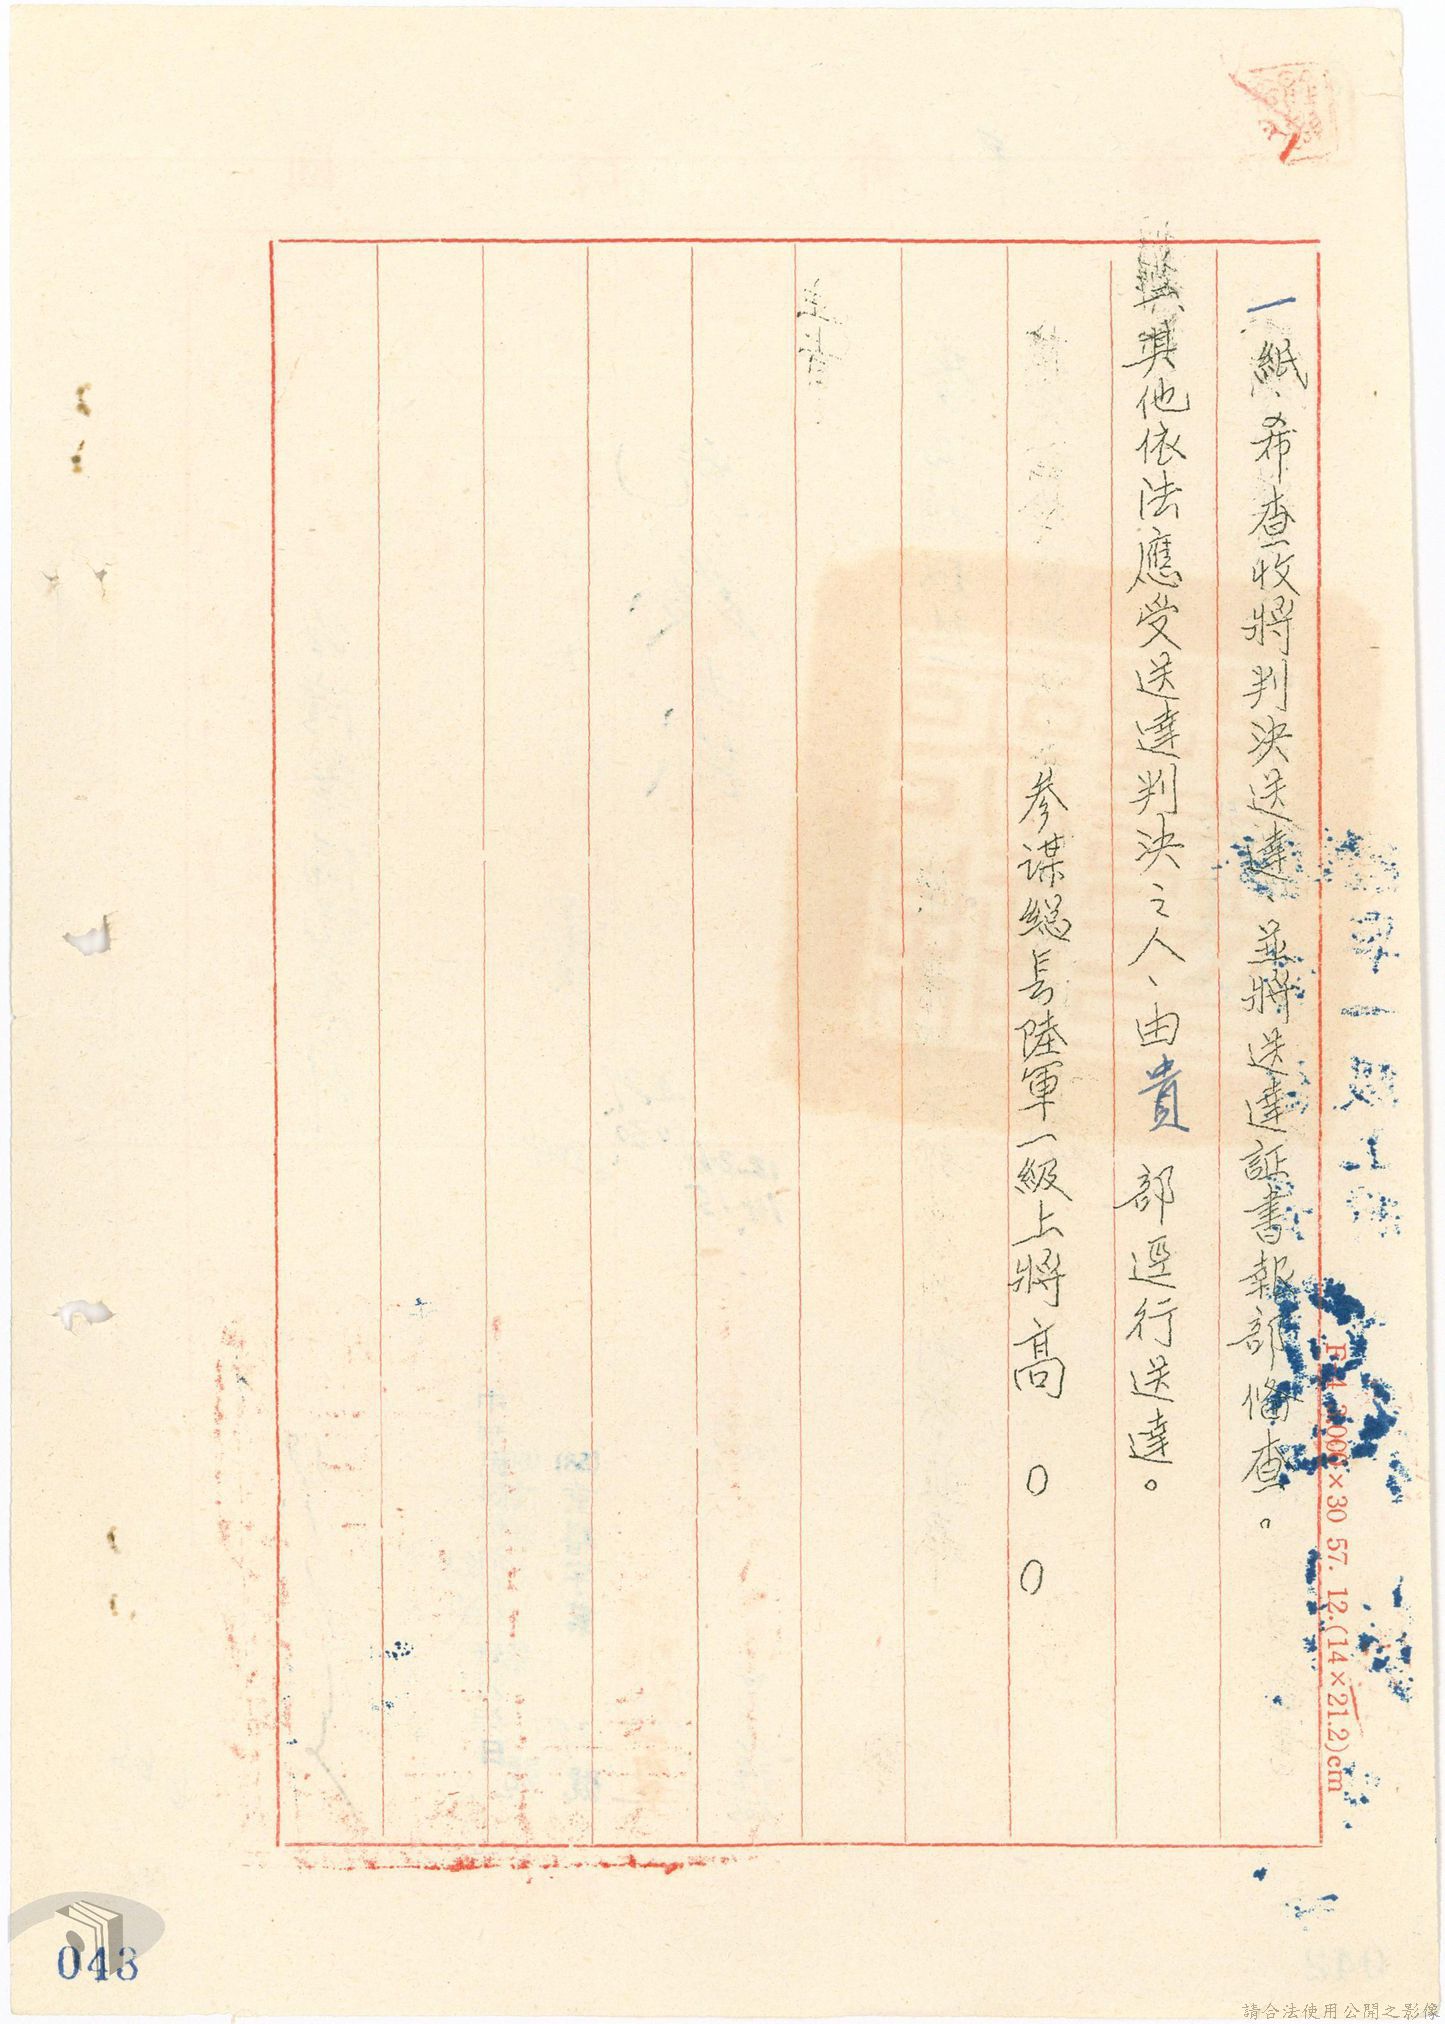 一紙、希查收將判決送達、並將送達証書報部備查。
其他依法應受送達判決之人、由貴部逕行送達。
參謀總長陸軍一級上將高○○
F-4 3000×30 57. 12.(14×21.2)cm
043
請合法使用公開之影像